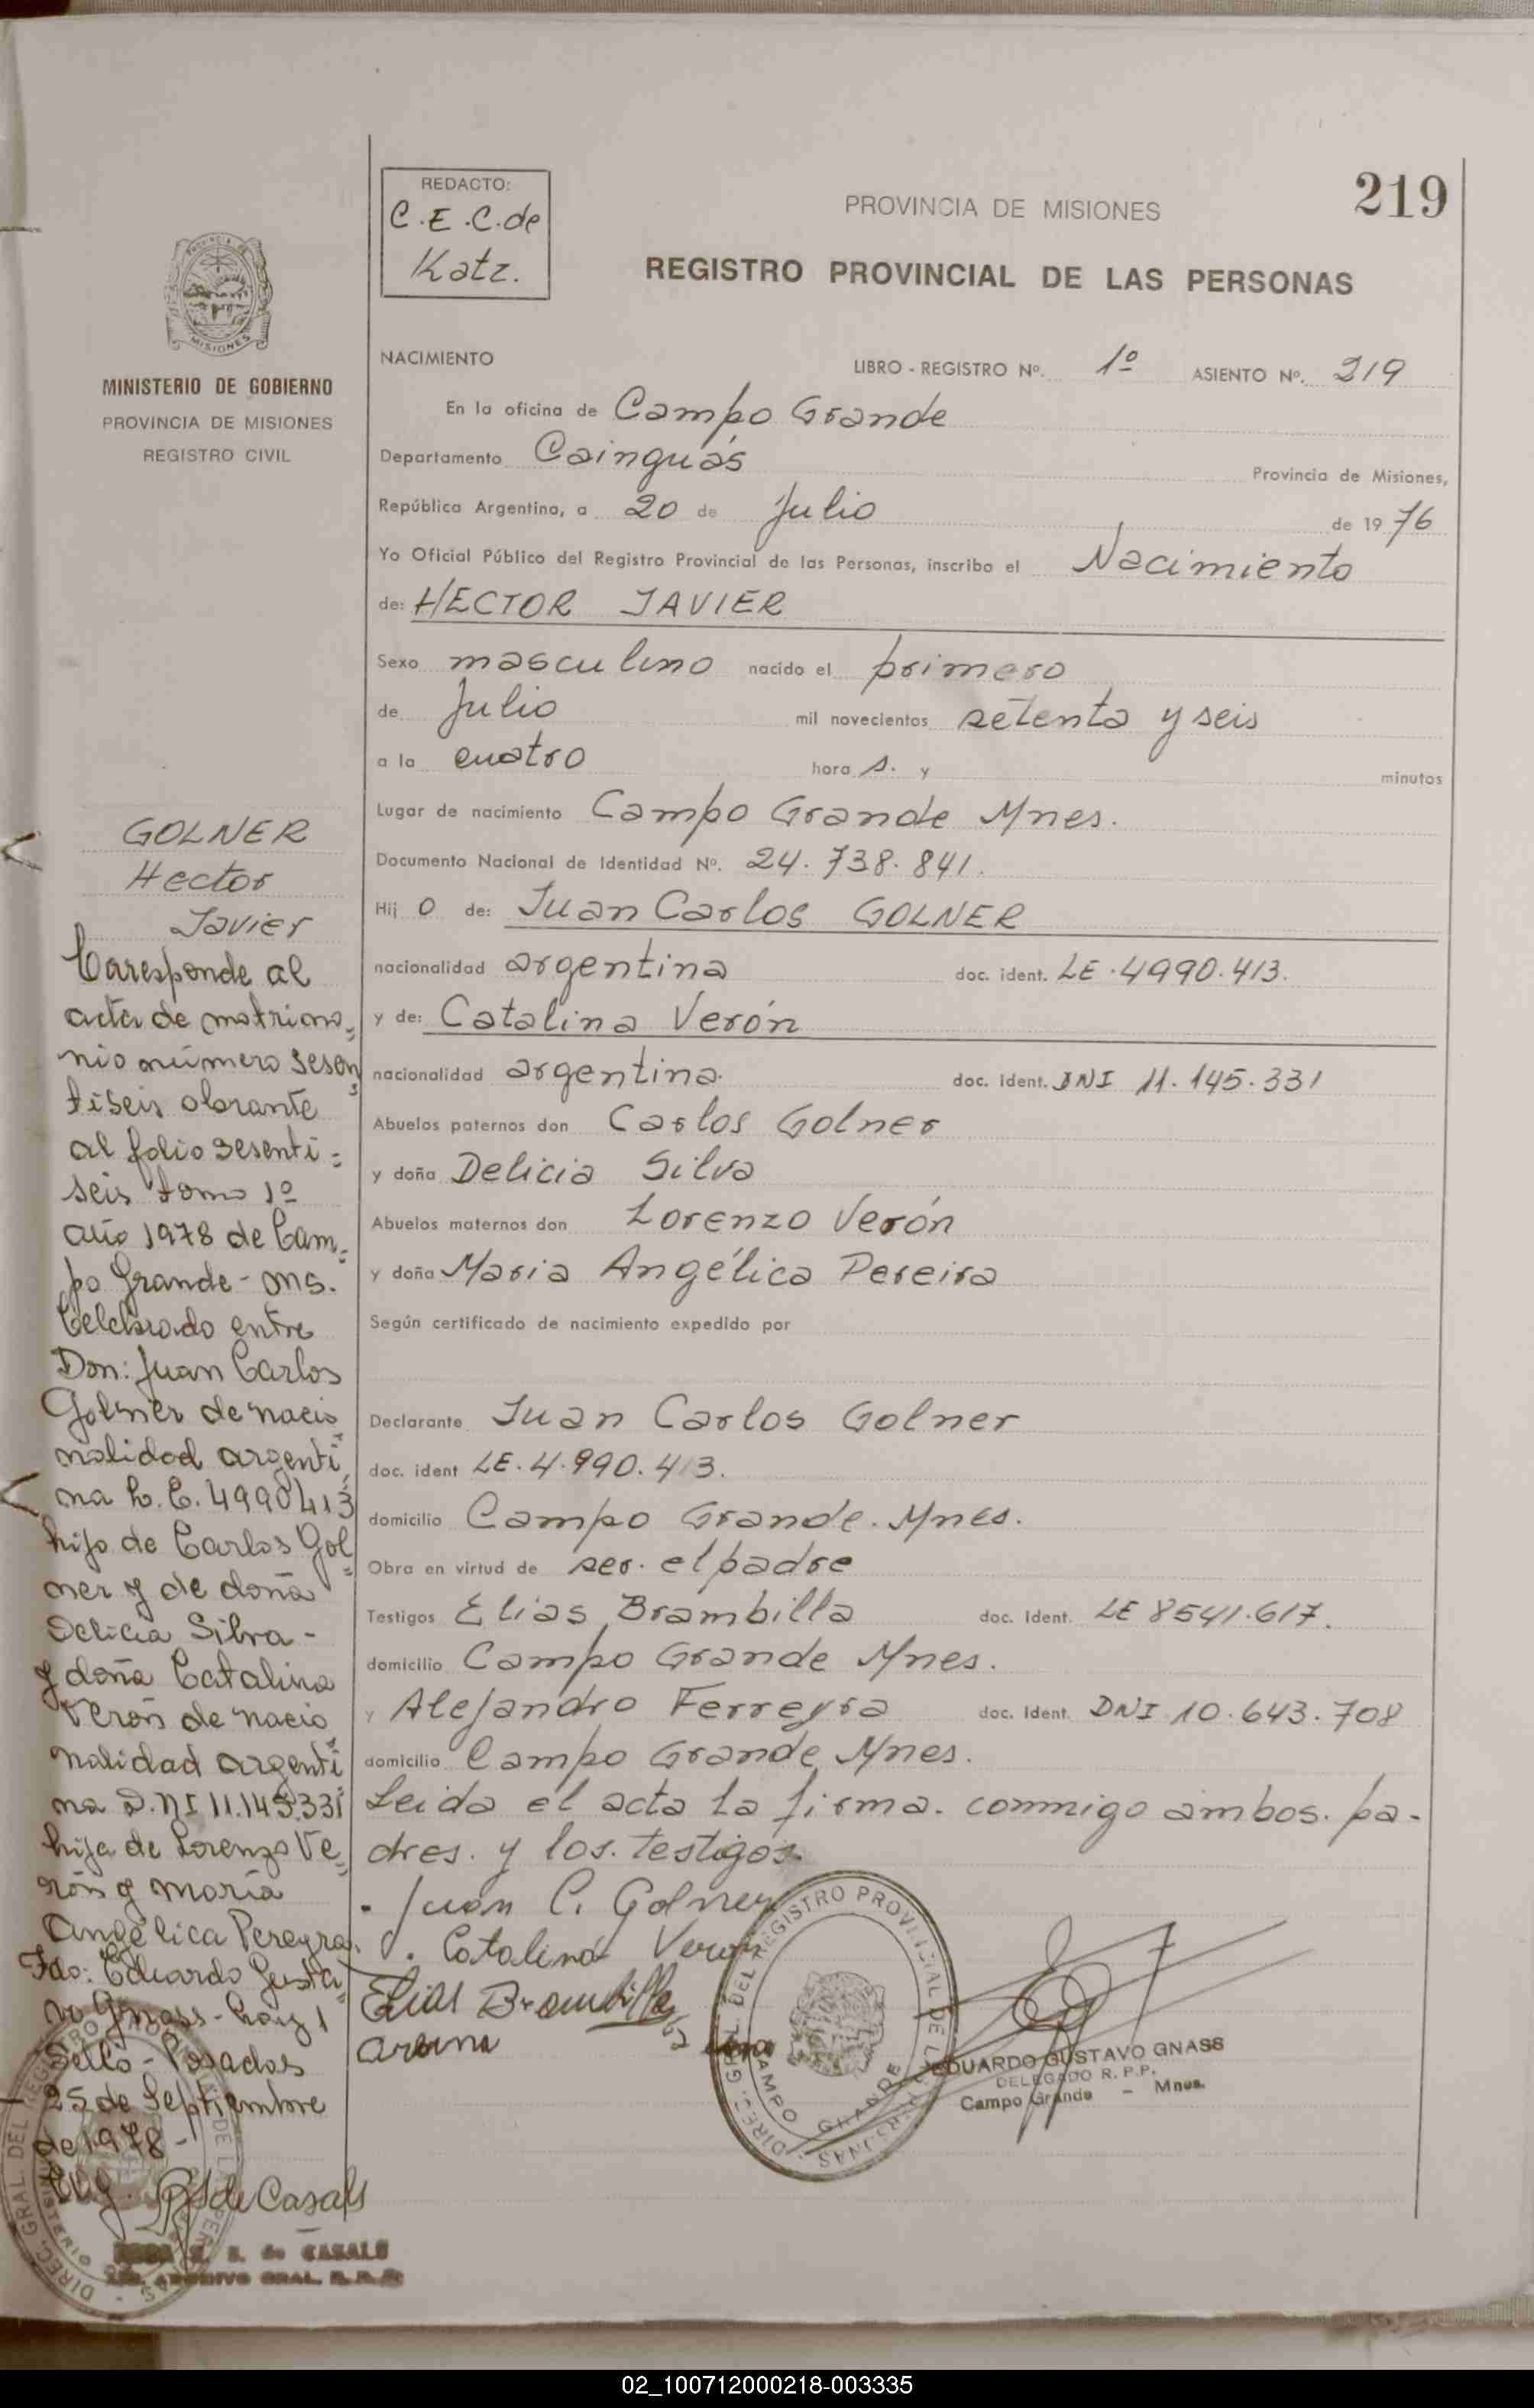 219
REDACTO:
C.E.C.de
Katz.
PROVINCIA DE MISIONES
REGISTRO PROVINCIAL DE LAS PERSONAS
MISIONES
MINISTERIO DE GOBIERNO
PROVINCIA DE MISIONES
REGISTRO CIVIL
NACIMIENTO LIBRO - REGISTRO Nº. 1º ASIENTO Nº. 219
En la oficina de Campo Grande
Departamento Cainguás Provincia de Misiones,
República Argentina, a 20 de Julio de 1976
Yo Oficial Público del Registro Provincial de las Personas, inscribo el Nacimiento
de: HECTOR JAVIER
Sexo masculino nacido el primero
de Julio mil novecientos setenta y seis
a la cuatro hora s. y minutos
Lugar de nacimiento Campo Grande Mnes.
Documento Nacional de Identidad Nº. 24.738.841.
Hij o de: Juan Carlos GOLNER
nacionalidad argentina doc. ident. LE.4990.413.
y de: Catalina Verón
nacionalidad argentina. doc. ident. DNI 11.145.331
Abuelos paternos don Carlos Golner
y doña Delicia Silva
Abuelos maternos don Lorenzo Verón
y doña Maria Angélica Pereira
Según certificado de nacimiento expedido por
Declarante Juan Carlos Golner
doc. ident LE.4.990.413.
domicilio Campo Grande. Mnes.
Obra en virtud de ser. el padre
Testigos Elias Brambilla doc. Ident. LE 8541.617.
domicilio Campo Grande Mnes.
y Alejandro Ferreyra doc. Ident. DNI 10.643.708
domicilio Campo Grande Mnes.
Leida el acta la firma. conmigo ambos. pa-
dres. y los. testigos.
Juan C. Golner
Catalina Veron
Elias Brambilla
DIREC. GRAL. DEL REGISTRO PROVINCIAL DE LAS PERSONAS
CAMPO GRANDE
EDUARDO GUSTAVO GNASS
DELEGADO R. P. P.
Campo Grande - Mnes.
GOLNER
Hector
Javier
Coresponde al
acta de matrimo=
nio número sesen
tiseis obrante
al folio sesenti=
seis tomo 1º
año 1978 de Cam=
po Grande - ms.
Celebrado entre
Don: Juan Carlos
Golner de nacio
nalidad argenti
na L.E. 4990413
hijo de Carlos Gol
ner y de doña
Delicia Silva -
y doña Catalina
Verón de nacio
nalidad argenti
na D.NI 11.145.331
hija de Lorenzo Ve=
rón y maría
Angélica Pereyra.
Fdo: Eduardo Gusta
vo Gnass - hay 1
Sello - Posadas
25 de Septiembre
de 1978 -
de Casals
S. de CASALS
ARCHIVO GRAL. R.P.P.
02_100712000218-003335